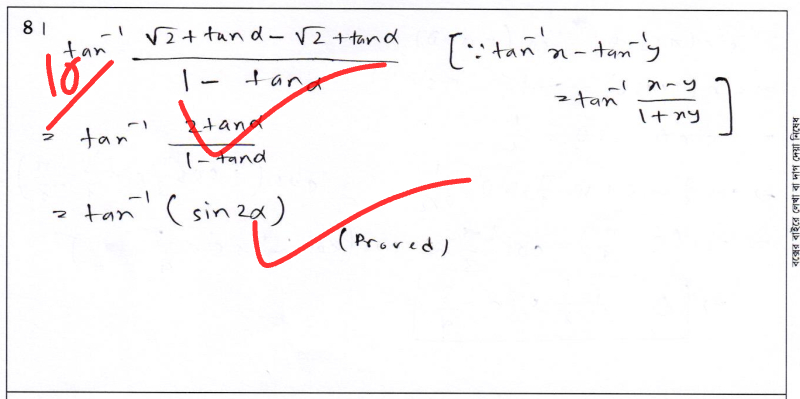 8|
tan⁻¹ (√2 + tanα − √2 + tanα) / (1 − tanα) [∵ tan⁻¹x − tan⁻¹y
= tan⁻¹ (x − y) / (1 + xy)]
10
= tan⁻¹ (2tanα) / (1 − tanα)
= tan⁻¹ (sin2α)
(Proved)
বক্সের বাইরে লেখা বা দাগ দেয়া নিষেধ